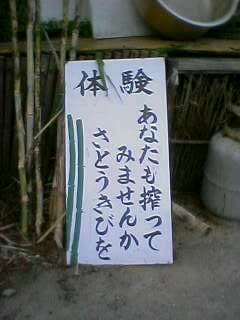 体験
あなたも搾って
みませんか
さとうきびを